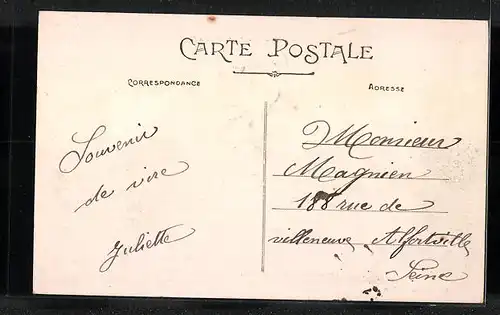 CARTE POSTALE
CORRESPONDANCE
ADRESSE
Souvenir
de vire
Juliette
Monsieur
Magnien
188 rue de
villeneuve Alfortville
Seine